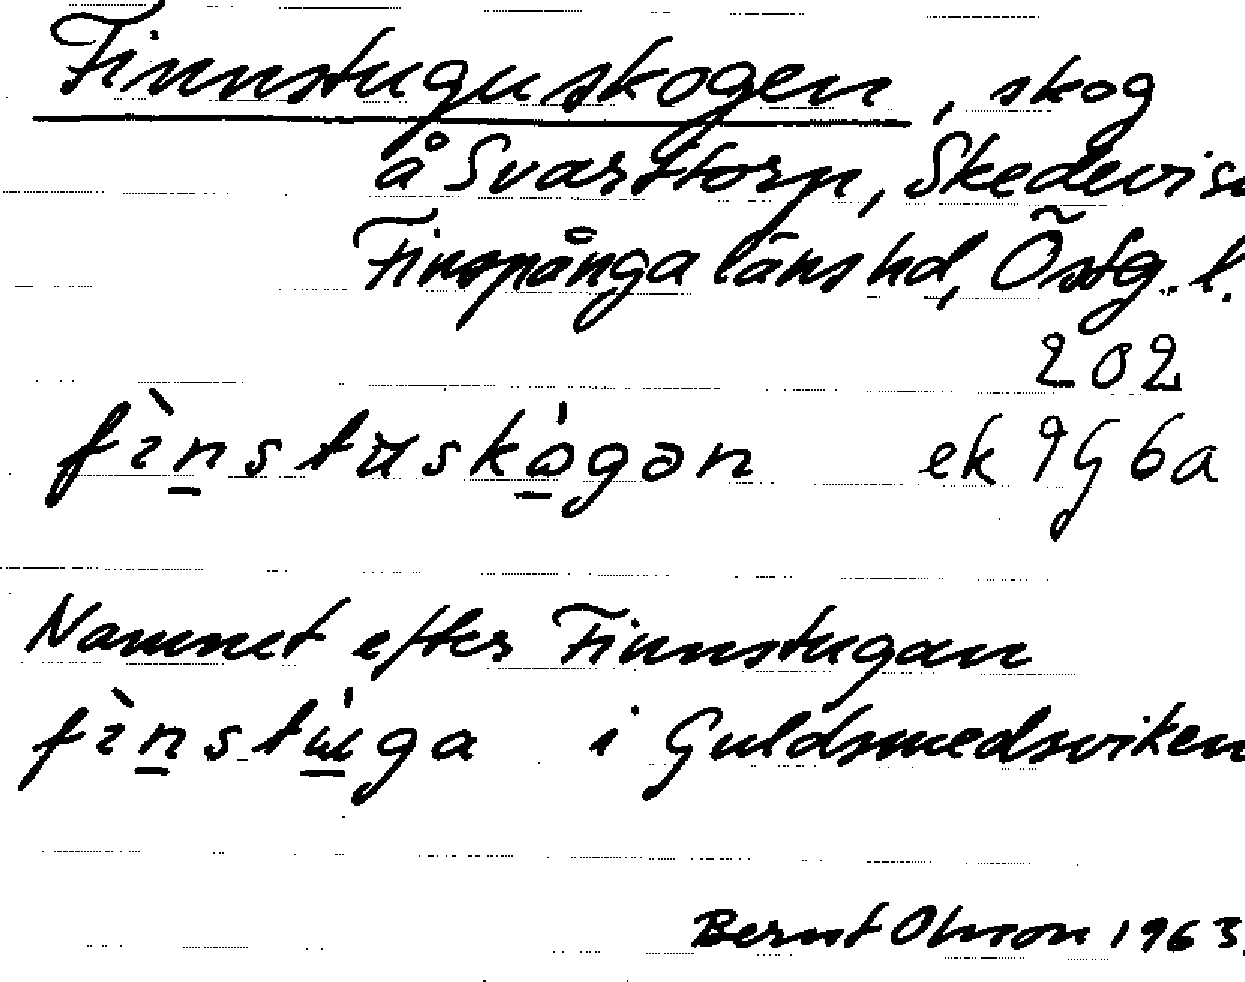 Finnstuguskogen, skog
å Svarttorp, Skedevi sn
Finspånga länshd, Östg. l.
202
fìnstuskógən ek 9G 6a
Namnet efter Finnstugan
fìnstúga i Guldsmedsviken
Bernt Olsson 1963